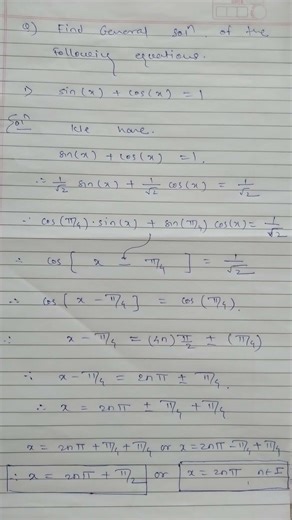 Q) Find General solⁿ. of the
following equations.
1) sin(x) + cos(x) = 1
Solⁿ We have.
sin(x) + cos(x) = 1.
∴ 1/√2 sin(x) + 1/√2 cos(x) = 1/√2
∴ cos(π/4)·sin(x) + sin(π/4) cos(x) = 1/√2
∴ cos[ x - π/4 ] = 1/√2
∴ cos[ x - π/4 ] = cos(π/4).
∴ x - π/4 = (4n) π/2 ± (π/4)
∴ x - π/4 = 2nπ ± π/4.
∴ x = 2nπ ± π/4 + π/4
x = 2nπ + π/4 + π/4 or x = 2nπ - π/4 + π/4
∴ x = 2nπ + π/2 or x = 2nπ, n∈I